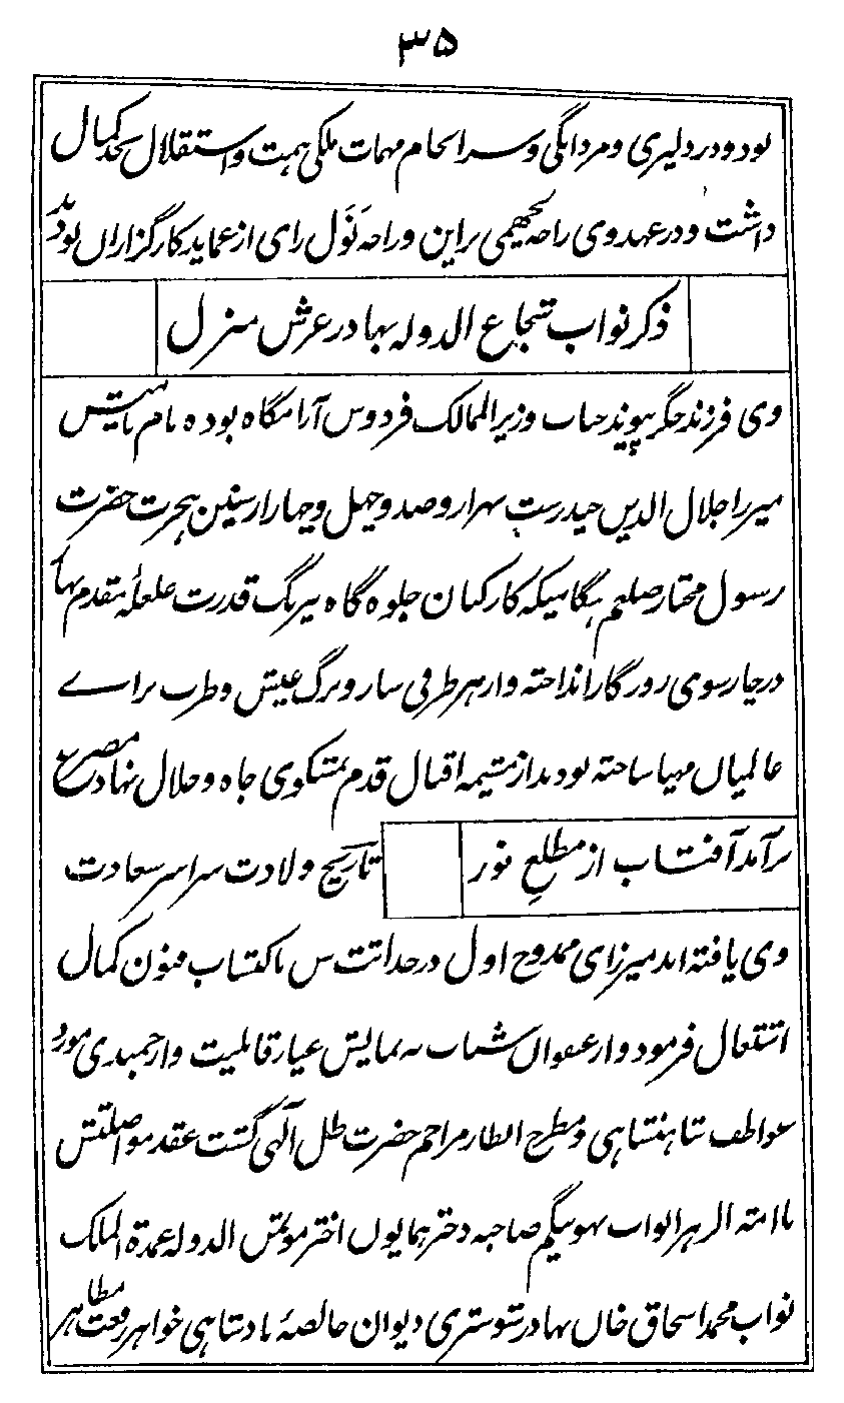 ۳۵
بود و در دلیری و مردانگی و سرانجام مهمات ملکی همت و استقلال بحد کمال
داشت و در عهد وی راجه لچهمی نراین و راجه نَوَل رای از عماید کارگزاراں بودند
ذکر نواب شجاع الدوله بهادر عرش منزل
وی فرزند جگر پیوند جناب وزیر الممالک فردوس آرامگاه بوده نام نامیش
میرزا جلال الدین حیدرست بهزار و صد و چهل و چهار از سنین هجرت حضرت
رسول مختار صلعم هنگامیکه کارکنان جلوه گاه نیرنگ قدرت غلغلهٔ مقدم بهار
در چار سوی روزگار انداخته و از هر طرفی ساز و برگ عیش و طرب برائے
عالمیاں مهیا ساخته بودند از مشیمه اقبال قدم بمشکوی جاه و جلال نهاد مصرع
برآمد آفتاب از مطلعِ نور تاریخ ولادت سراسر سعادت
وی یافته اند میرزای ممدوح اول در حداثت سن باکتساب فنون کمال
اشتغال فرمود و از عنفوان شباب به نمایش عیار قابلیت و ارجمندی مورد
عواطف شاهنشاهی و مطرح انظار مراحم حضرت ظل آلهی گشت عقد مواصلتش
با امته الزهرا نواب بهو بیگم صاحبه دختر همایوں اختر موتمن الدوله عمدة الملک
نواب محمد اسحاق خاں بهادر شوستری دیوان خالصهٔ بادشاهی خواهر رفعت مظاهر